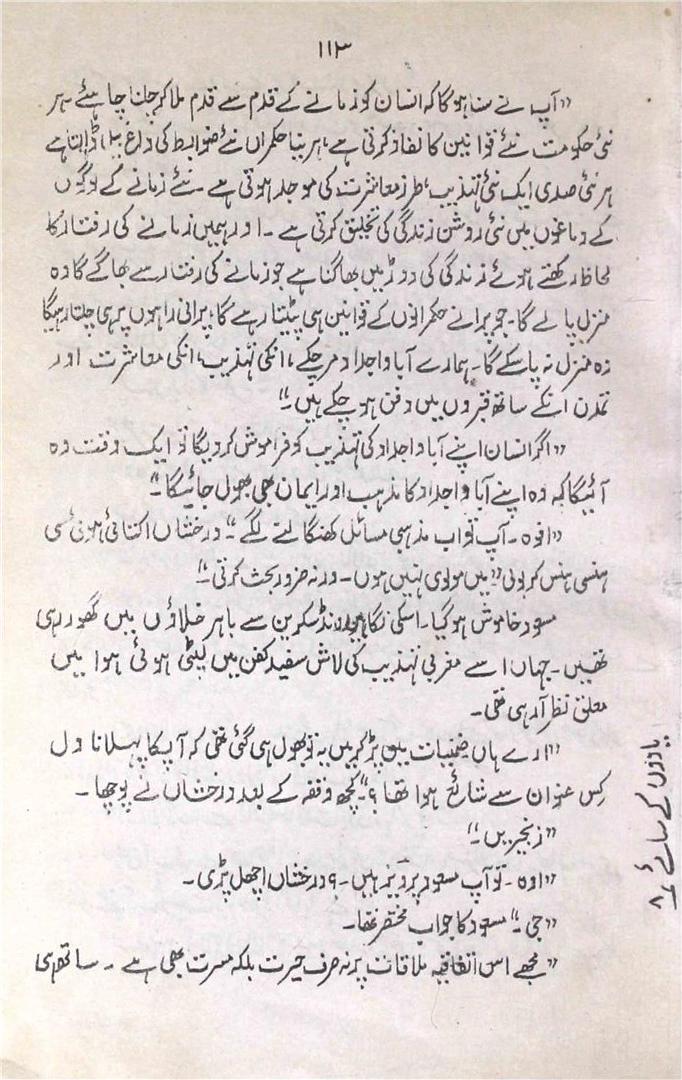 ۱۱۳
"آپ نے سنا ہوگا کہ انسان کو زمانے کے قدم سے قدم ملا کر چلنا چاہئے۔ ہر
نئی حکومت نئے قوانین کا نفاذ کرتی ہے، ہر نیا حکمراں نئے ضوابط کی داغ بیل ڈالتا ہے
ہر نئی صدی ایک نئی تہذیب، طرز معاشرت کی موجد ہوتی ہے۔ نئے زمانے کے لوگوں
کے دماغوں میں نئی روشن زندگی کی تخلیق کرتی ہے۔ اور ہمیں زمانے کی رفتار کا
لحاظ رکھتے ہوئے زندگی کی دوڑ میں بھاگنا ہے جو زمانے کی رفتار سے بھاگے گا وہ
منزل پالے گا۔ جو پرانے حکمرانوں کے قوانین ہی پیٹتا رہے گا، پرانی راہوں پر ہی چلتا رہیگا
وہ منزل نہ پا سکے گا۔ ہمارے آبا واجداد مر چکے، انکی تہذیب، انکی معاشرت اور
تمدن انکے ساتھ قبروں میں دفن ہو چکے ہیں۔"
"اگر انسان اپنے آبا واجداد کی تہذیب کو فراموش کر دیگا تو ایک وقت وہ
آئیگا کہ وہ اپنے آبا واجداد کا مذہب اور ایمان بھی بھول جائیگا۔"
"افوہ۔ آپ تو اب مذہبی مسائل کھنگالنے لگے۔" درخشاں اکتائی ہوئی سی
ہنسی ہنس کر بولی "میں مولوی نہیں ہوں۔ ورنہ ضرور بحث کرتی۔"
مسعود خاموش ہو گیا۔ اسکی نگاہیں ونڈ سکرین سے باہر خلاؤں میں گھور رہی
تھیں۔ جہاں اسے مغربی تہذیب کی لاش سفید کفن میں لپٹی ہوئی ہوا میں
معلق نظر آرہی تھی۔
"ارے ہاں ضمنیات میں پڑ کر میں یہ تو بھول ہی گئی تھی کہ آپکا پہلا ناول
کس عنوان سے شائع ہوا تھا؟" کچھ وقفہ کے بعد درخشاں نے پوچھا۔
"زنجیریں۔"
"اوہ۔ تو آپ مسعود پرویز ہیں۔؟ درخشاں اچھل پڑی۔
"جی۔" مسعود کا جواب مختصر تھا۔
"مجھے اس اتفاقیہ ملاقات پر نہ صرف حیرت بلکہ مسرت بھی ہے۔ ساتھ ہی
یادوں کے سائے